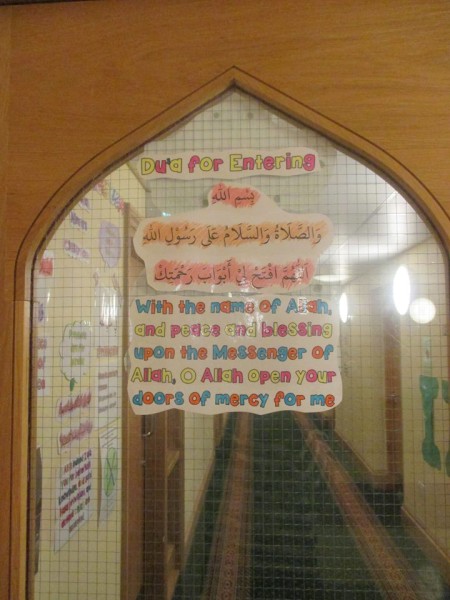 Du'a for Entering
بِسْمِ اللهِ
وَالصَّلَاةُ وَالسَّلَامُ عَلَى رَسُوْلِ اللهِ
اَللّٰهُمَّ افْتَحْ لِيْ أَبْوَابَ رَحْمَتِكَ
With the name of Allah,
and peace and blessing
upon the Messenger of
Allah, O Allah open your
doors of mercy for me